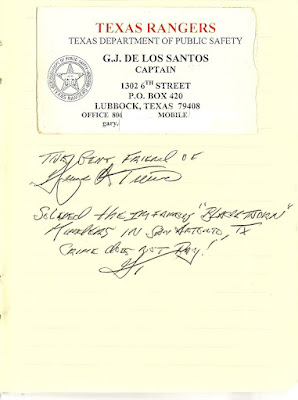 TEXAS RANGERS
TEXAS DEPARTMENT OF PUBLIC SAFETY
G.J. DE LOS SANTOS
CAPTAIN
1302 6TH STREET
P.O. BOX 420
LUBBOCK, TEXAS 79408
OFFICE 806 MOBILE
gary.
Friend of
Solved the infamous "Blackthorn"
Murders in San Antonio, TX
Crime does not Pay!